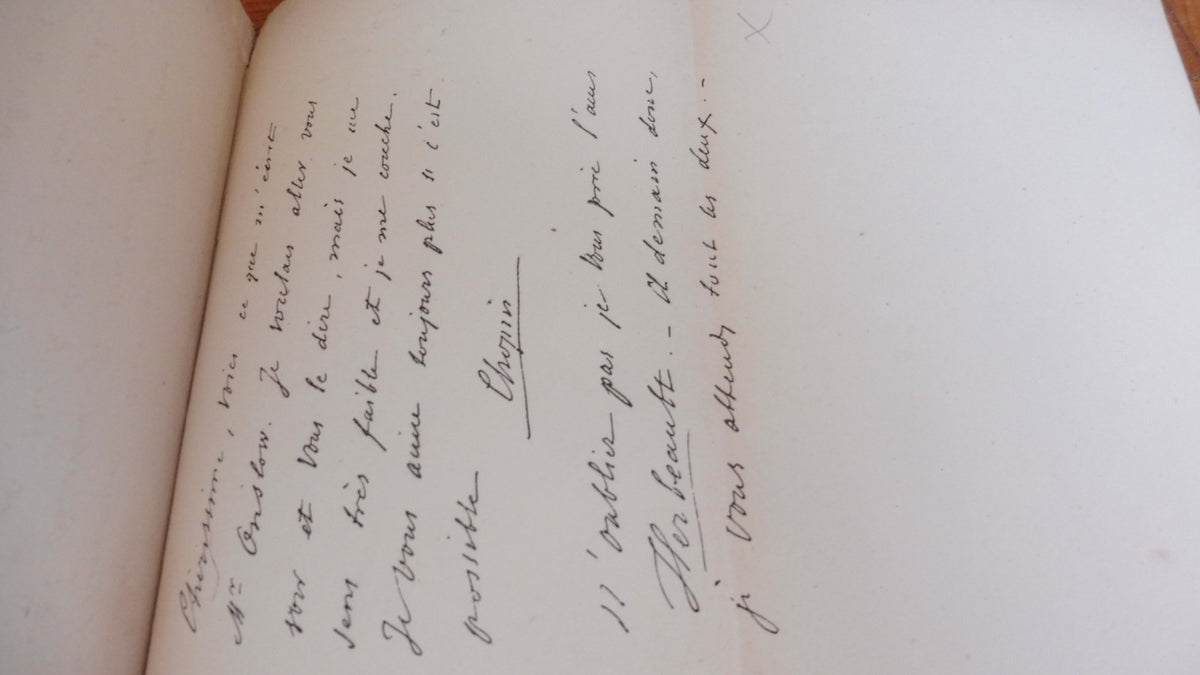 Chérissime, voici ce que m'écrit
Mr Onslow. Je voulais aller vous
voir et vous le dire, mais je me
sens très faible et je me couche.
Je vous aime toujours plus si c'est
possible
Chopin
N'oubliez pas je vous prie l'ami
Herbeault. - A demain donc,
je vous attends tous les deux. -
X